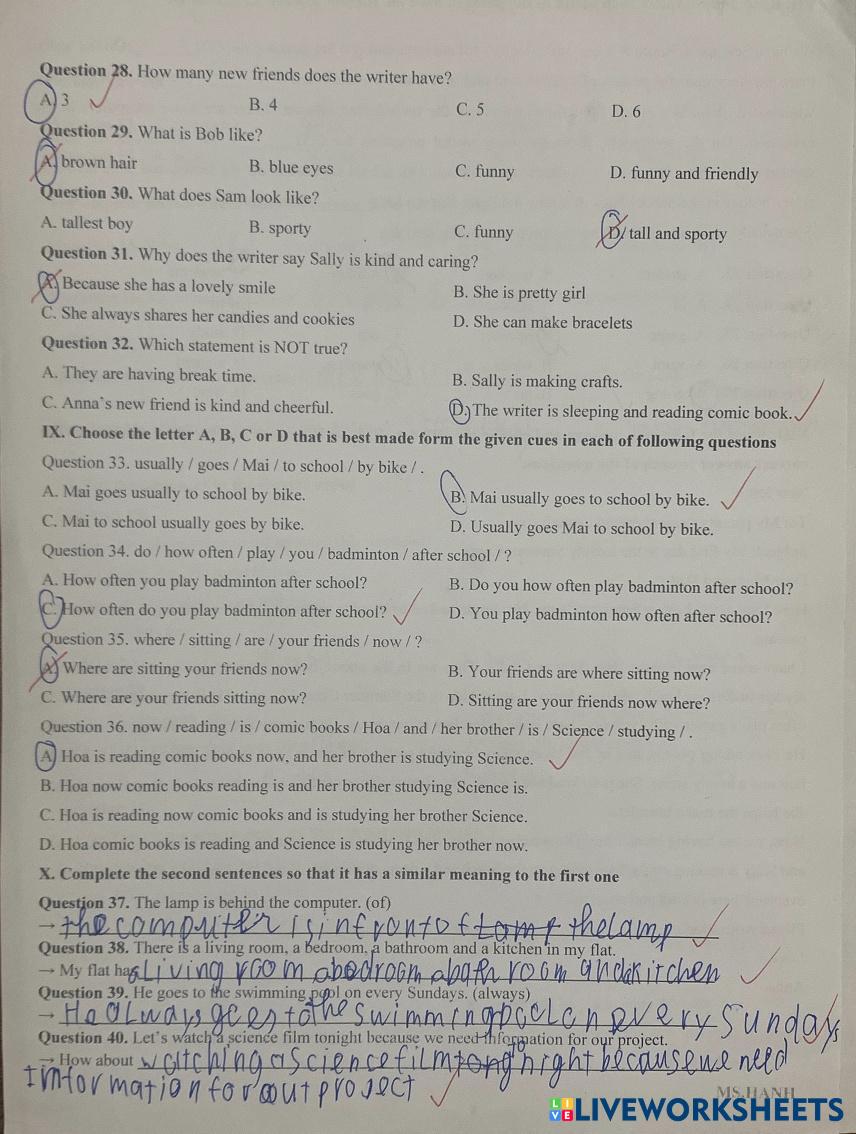 Question 28. How many new friends does the writer have?
A. 3 B. 4 C. 5 D. 6
Question 29. What is Bob like?
A. brown hair B. blue eyes C. funny D. funny and friendly
Question 30. What does Sam look like?
A. tallest boy B. sporty C. funny D. tall and sporty
Question 31. Why does the writer say Sally is kind and caring?
A. Because she has a lovely smile B. She is pretty girl
C. She always shares her candies and cookies D. She can make bracelets
Question 32. Which statement is NOT true?
A. They are having break time. B. Sally is making crafts.
C. Anna's new friend is kind and cheerful. D. The writer is sleeping and reading comic book.
IX. Choose the letter A, B, C or D that is best made form the given cues in each of following questions
Question 33. usually / goes / Mai / to school / by bike / .
A. Mai goes usually to school by bike. B. Mai usually goes to school by bike.
C. Mai to school usually goes by bike. D. Usually goes Mai to school by bike.
Question 34. do / how often / play / you / badminton / after school / ?
A. How often you play badminton after school? B. Do you how often play badminton after school?
C. How often do you play badminton after school? D. You play badminton how often after school?
Question 35. where / sitting / are / your friends / now / ?
A. Where are sitting your friends now? B. Your friends are where sitting now?
C. Where are your friends sitting now? D. Sitting are your friends now where?
Question 36. now / reading / is / comic books / Hoa / and / her brother / is / Science / studying / .
A. Hoa is reading comic books now, and her brother is studying Science.
B. Hoa now comic books reading is and her brother studying Science is.
C. Hoa is reading now comic books and is studying her brother Science.
D. Hoa comic books is reading and Science is studying her brother now.
X. Complete the second sentences so that it has a similar meaning to the first one
Question 37. The lamp is behind the computer. (of)
→ the computer is in front of the lamp
Question 38. There is a living room, a bedroom, a bathroom and a kitchen in my flat.
→ My flat has a living room a bedroom a bath room and a kitchen
Question 39. He goes to the swimming pool on every Sundays. (always)
→ He always goes to the swimming pool on every Sundays
Question 40. Let's watch a science film tonight because we need information for our project.
→ How about watching a science film to night because we need
information for out project
MS.HANH
LIVEWORKSHEETS